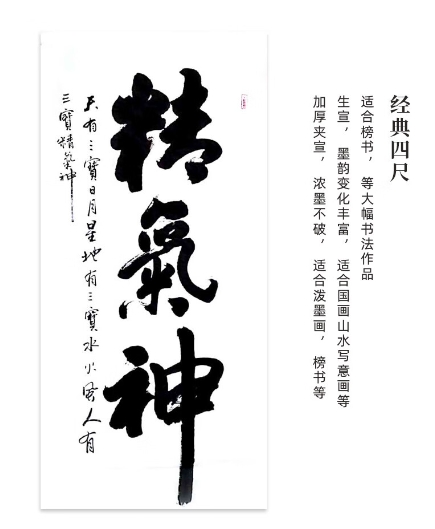 经典四尺
适合榜书，等大幅书法作品
生宣，墨韵变化丰富，适合国画山水写意画等
加厚夹宣，浓墨不破，适合泼墨画，榜书等
精氣神
天有三寶日月星地有三寶水火風人有
三寶精氣神